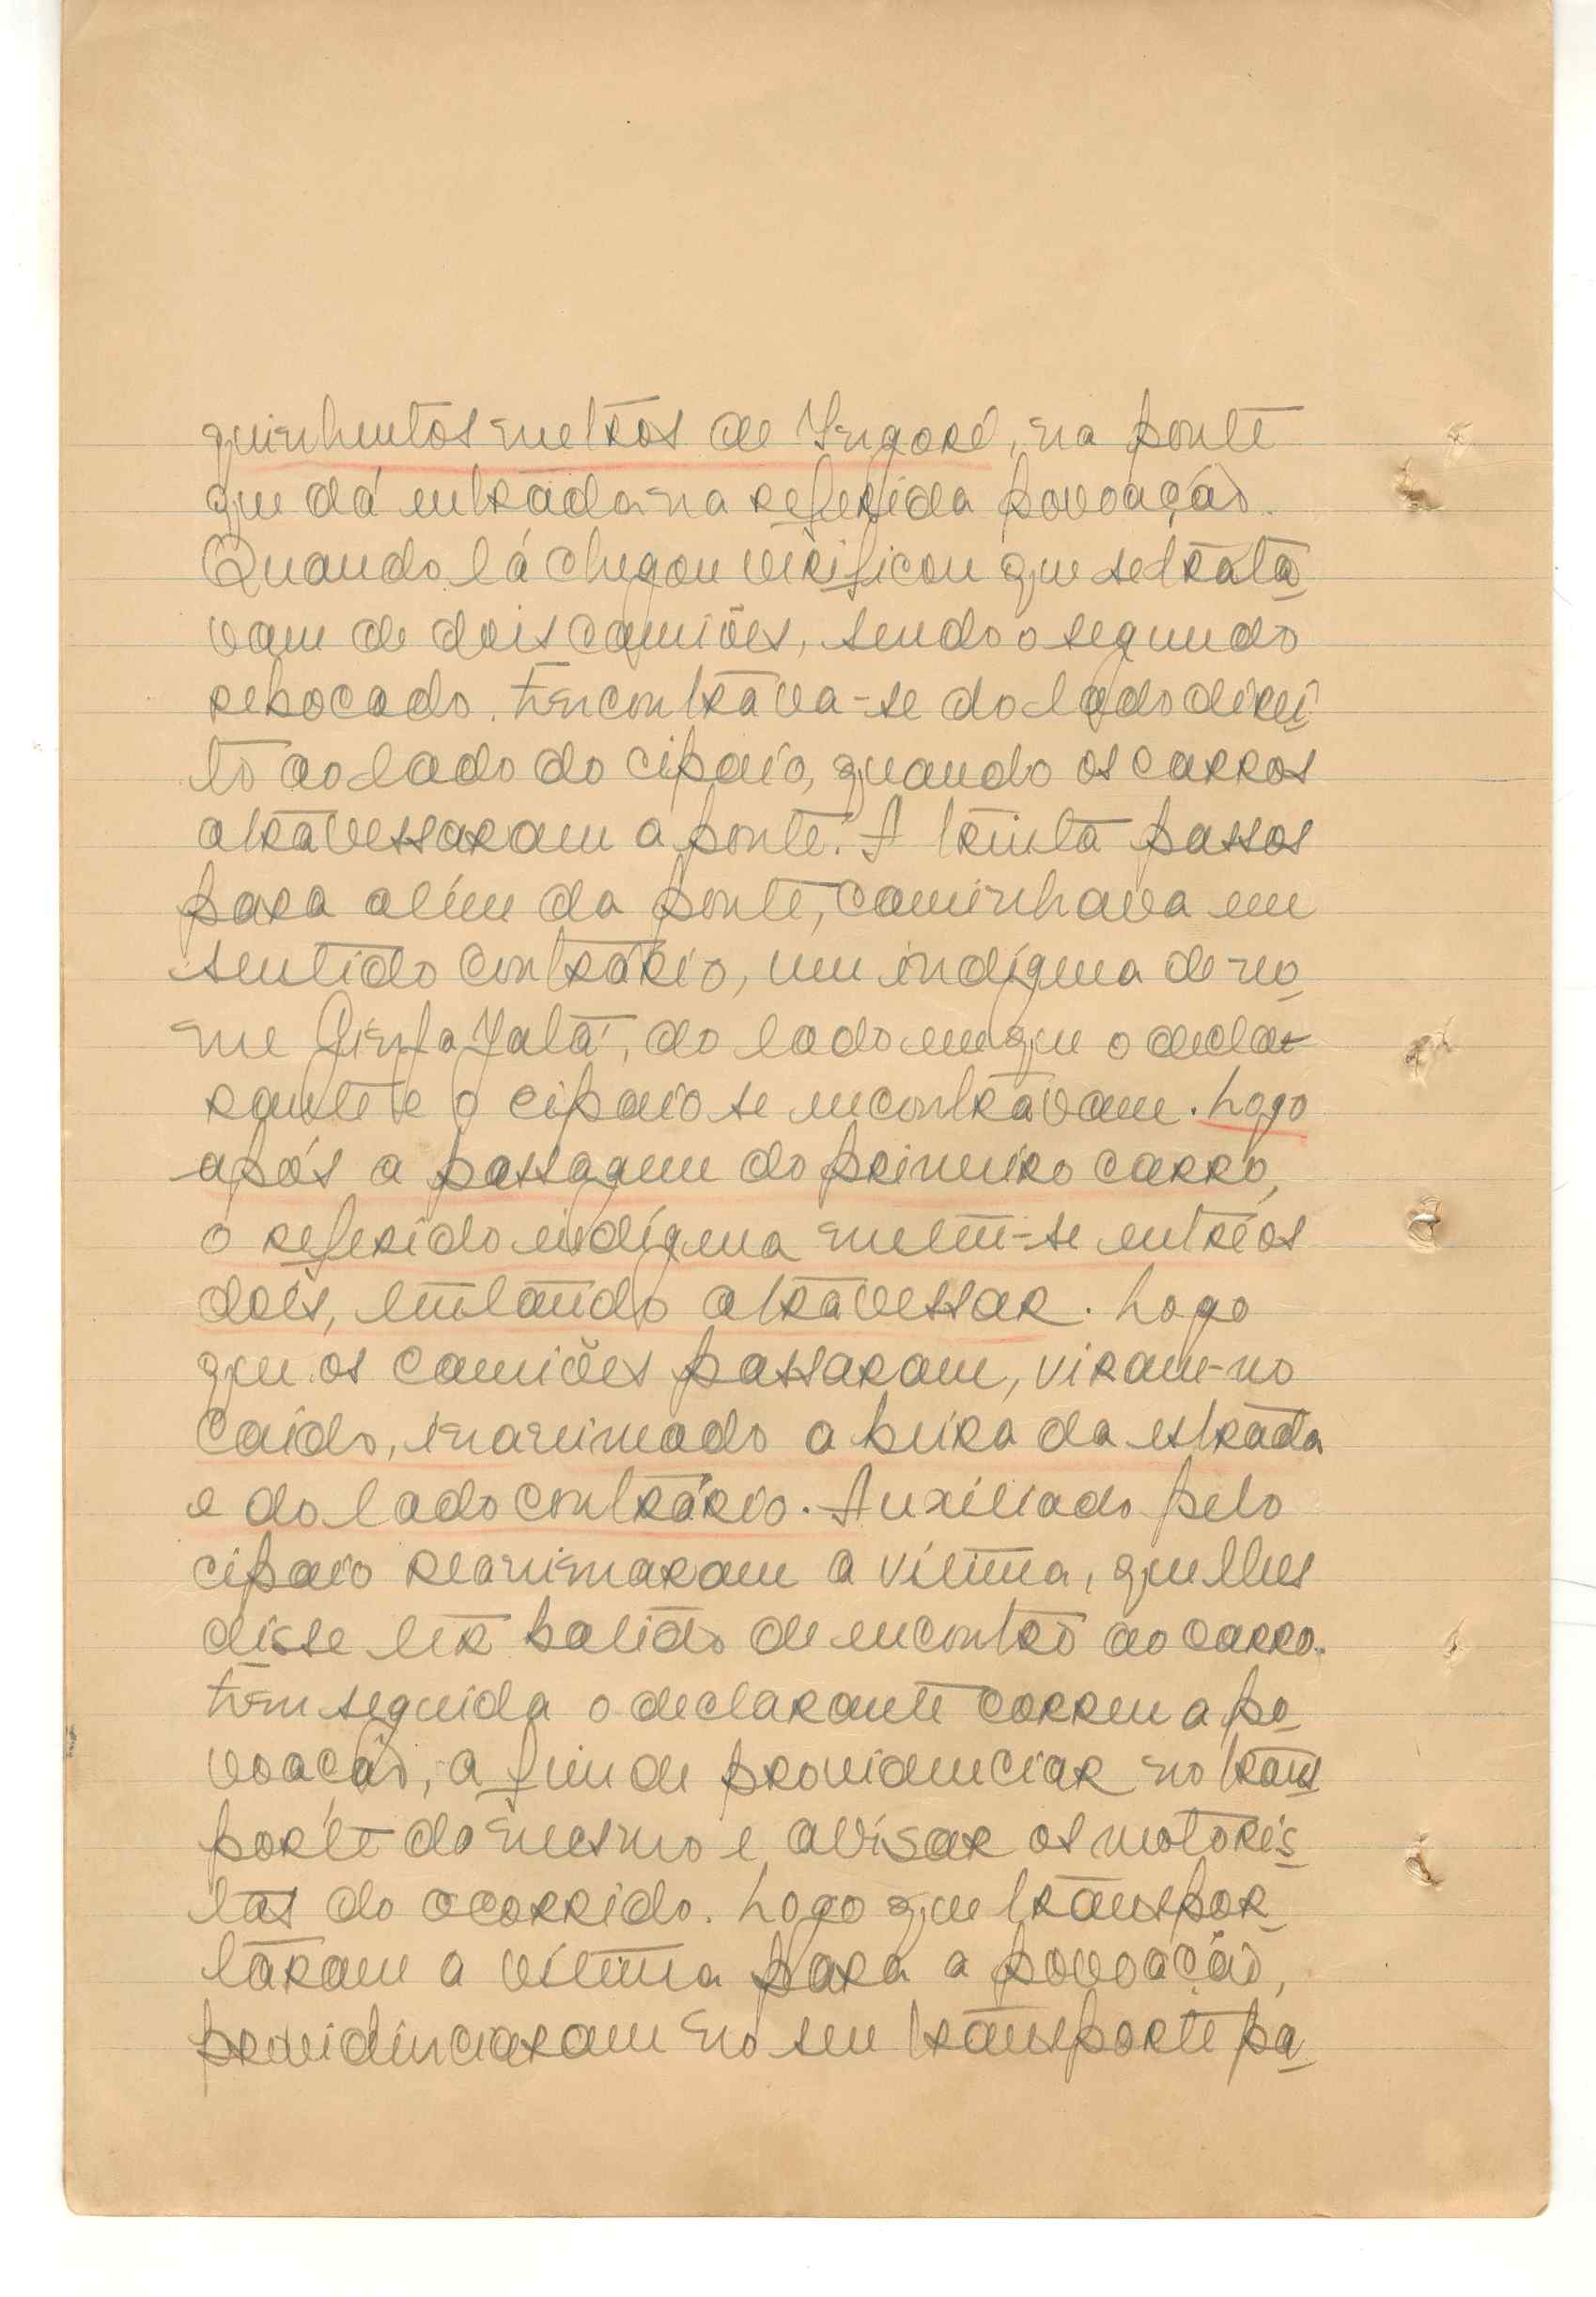 quinhentos metros de Ingoré, na ponte
que dá entrada na referida povoação.
Quando lá chegou verificou que se trata
vam de dois camiões, sendo o segundo
rebocado. Encontrava-se do lado direi
to ao lado do cipaio, quando os carros
atravessaram a ponte. A trinta passos
para além da ponte, caminhava em
sentido contrário, um indígena de no
me Jalá, do lado em que o decla-
rante e o cipaio se encontravam. Logo
após a passagem do primeiro carro,
o referido indígena meteu-se entre os
dois, tentando atravessar. Logo
que os camiões passaram, viram-no
caído, inanimado a beira da estrada
e do lado contrário. Auxiliado pelo
cipaio reanimaram a vítima, que lhes
disse ter batido de encontro ao carro.
Em seguida o declarante correu a po
voação, a fim de providenciar no trans
porte do mesmo e avisar os motoris
tas do ocorrido. Logo que transpor
taram a vítima para a povoação,
providênciaram no seu transporte pa